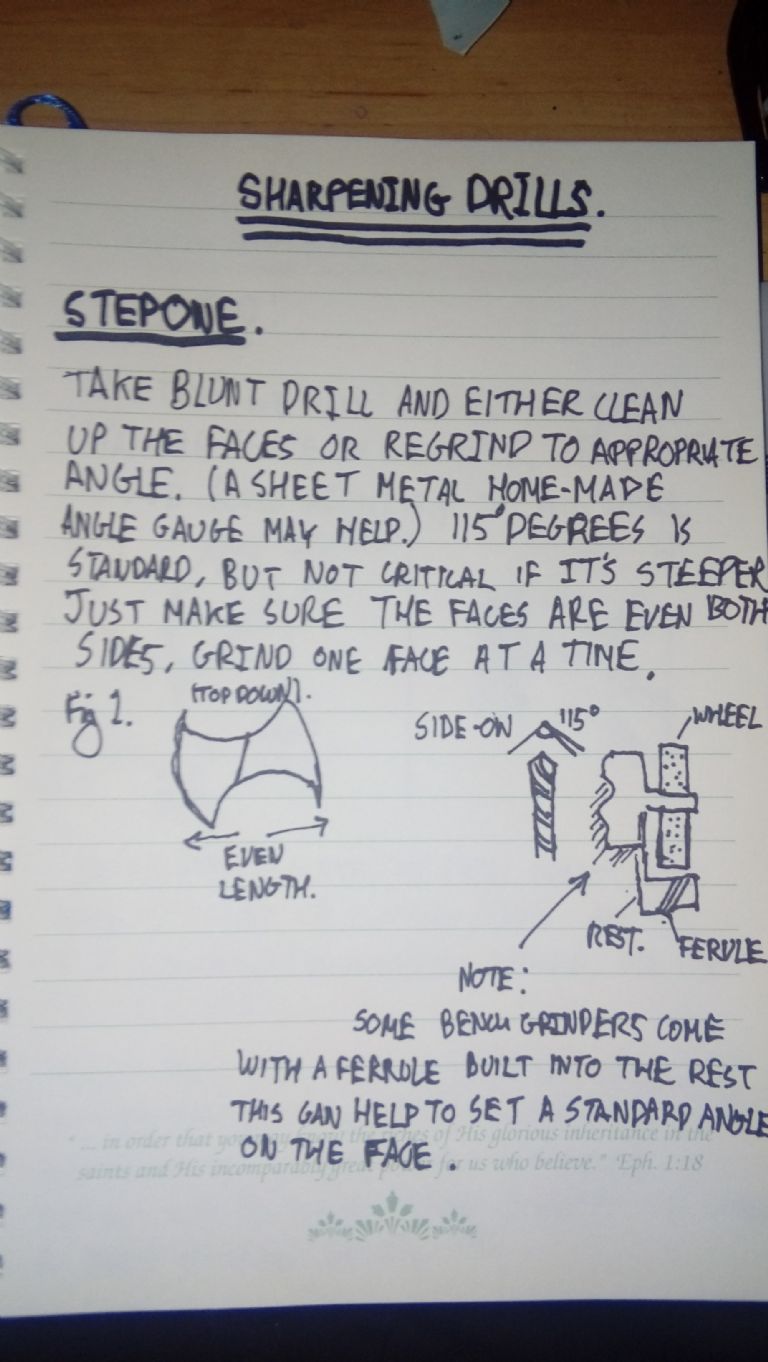 SHARPENING DRILLS.
STEP ONE.
TAKE BLUNT DRILL AND EITHER CLEAN
UP THE FACES OR REGRIND TO APPROPRIATE
ANGLE. (A SHEET METAL HOME-MADE
ANGLE GAUGE MAY HELP.) 115° DEGREES IS
STANDARD, BUT NOT CRITICAL IF IT'S STEEPER
JUST MAKE SURE THE FACES ARE EVEN BOTH
SIDES, GRIND ONE FACE AT A TIME.
Fig 1.
(TOP DOWN).
EVEN
LENGTH.
SIDE-ON
115°
WHEEL
REST.
FERULE
NOTE:
SOME BENCH GRINDERS COME
WITH A FERRULE BUILT INTO THE REST
THIS CAN HELP TO SET A STANDARD ANGLE
ON THE FACE.
"... in order that you may know the riches of His glorious inheritance in the
saints and His incomparably great power for us who believe." Eph. 1:18